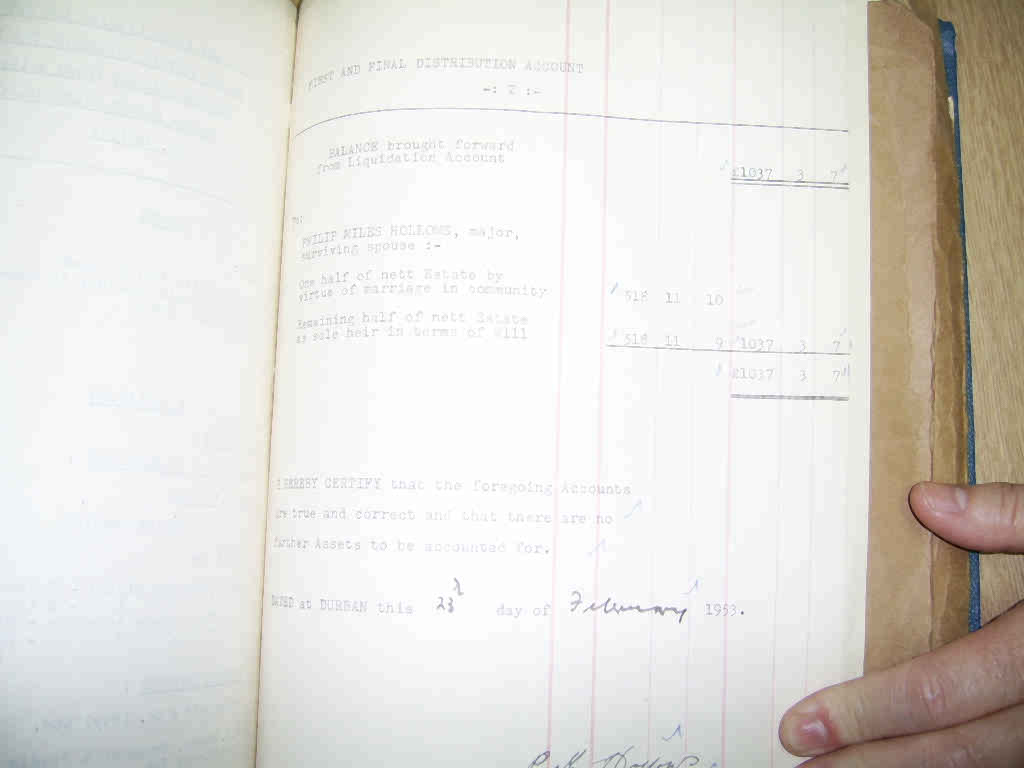 FIRST AND FINAL DISTRIBUTION ACCOUNT
BALANCE brought forward
from Liquidation Account £1037 3 7
To:
PHILIP MILES HOLLOWS, major,
surviving spouse :-
One half of nett Estate by
virtue of marriage in community 518 11 10
Remaining half of nett Estate
as sole heir in terms of Will 518 11 9 1037 3 7
£1037 3 7
I HEREBY CERTIFY that the foregoing Accounts
are true and correct and that there are no
further Assets to be accounted for.
DATED at DURBAN this 23 day of February 1953.